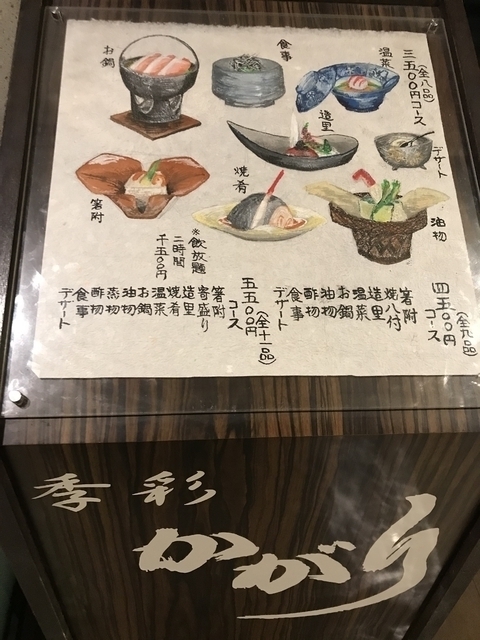 三五〇〇円コース
(全八品)
温菜
食事
お鍋
造里
デザート
焼肴
箸附
油物
四五〇〇円
コース
(全九品)
箸附
焼八付
造里
温菜
お鍋
油物
酢物
食事
デザート
五五〇〇円
コース
(全十一品)
箸附
寄盛り
造里
焼肴
温菜
お鍋
油物
蒸物
酢物
食事
デザート
※飲放題
二時間
千五〇〇円
季彩
かがり